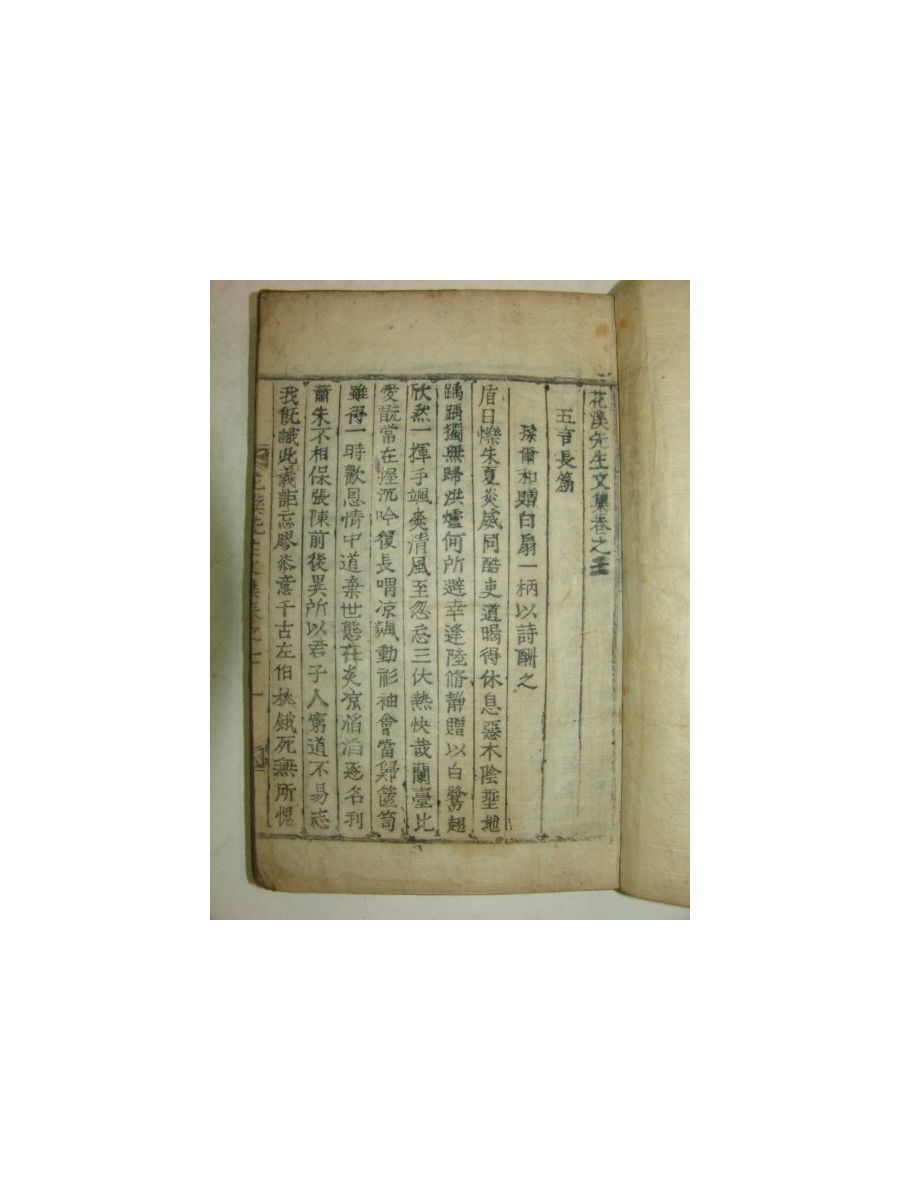 花溪先生文集卷之三
五言長篇
孫爾和贈白扇一柄以詩酬之
盾日爍朱夏炎威同酷吏道暍得休息惡木陰垂地
踽踽獨無歸洪爐何所避幸逢陸脩靜贈以白鷺翅
欣然一揮手颯爽清風至忽忘三伏熱快哉蘭臺比
愛翫常在握沉吟復長喟凉飇動衫袖會當歸篋笥
雖得一時歡恩情中道棄世態在炎凉滔滔逐名利
蕭朱不相保張陳前後異所以君子人窮道不易志
我旣識此義詎忘膠漆意千古左伯桃餓死無所愧
先生文集卷之 一